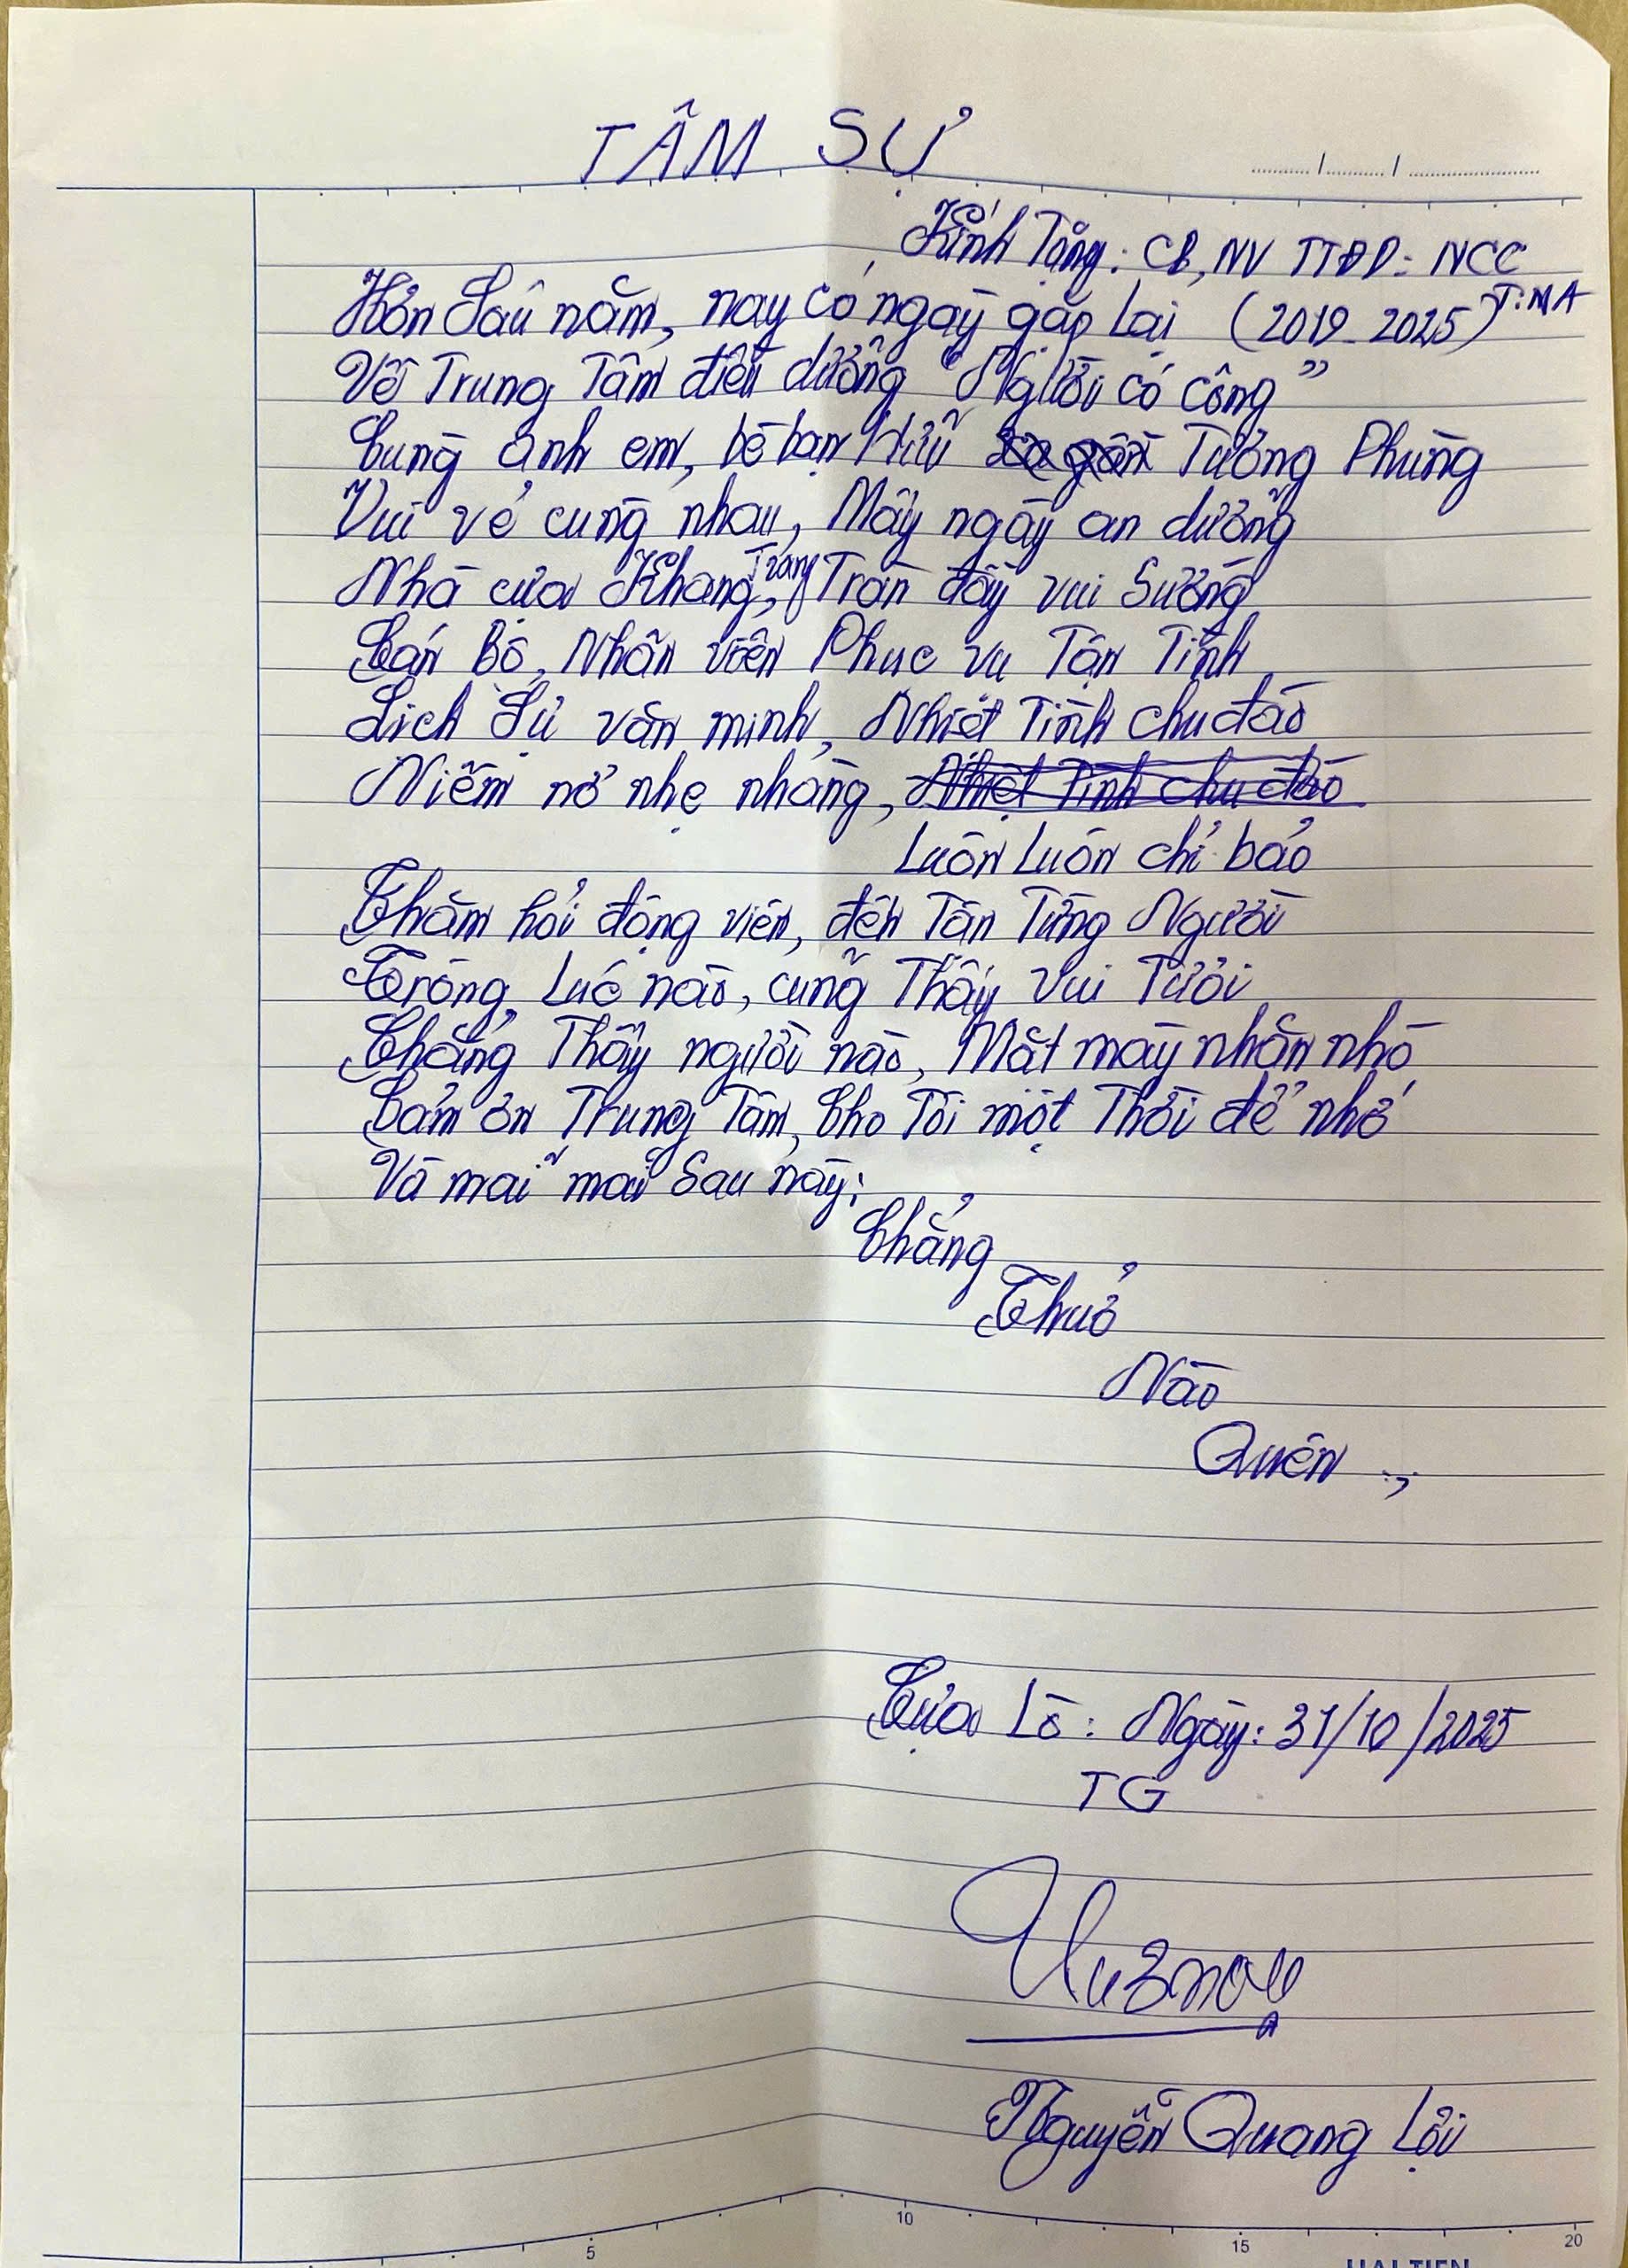 TÂM SỰ
Kính Tặng: CB, NV TTĐD: NCC
T: NA
Hơn Sáu năm, nay có ngày gặp lại (2019 - 2025)
Về Trung Tâm điều dưỡng "Người có công"
Cùng anh em, bè bạn Hữu Tương Phùng
Vui vẻ cùng nhau, Mấy ngày an dưỡng
Nhà cửa Khang Trang, Tràn đầy vui Sướng
Cán Bộ, Nhân viên Phục vụ Tận Tình
Lịch Sự văn minh, Nhiệt Tình chu đáo
Niềm nở nhẹ nhàng, Nhiệt Tình chu đáo
Luôn Luôn chỉ bảo
Thăm hỏi động viên, đến Tận Từng Người
Trông Lúc nào, cũng Thấy Vui Tươi
Chẳng Thấy người nào, Mặt mày nhăn nhó
Cảm ơn Trung Tâm, Cho Tôi một Thời để nhớ
Và mãi mãi Sau này:
Chẳng
Thuở
Nào
Quên
Cửa Lò: Ngày: 31/10/2025
TG
Nguyễn Quang Lợi
5
10
15
20
HẢI TIẾN